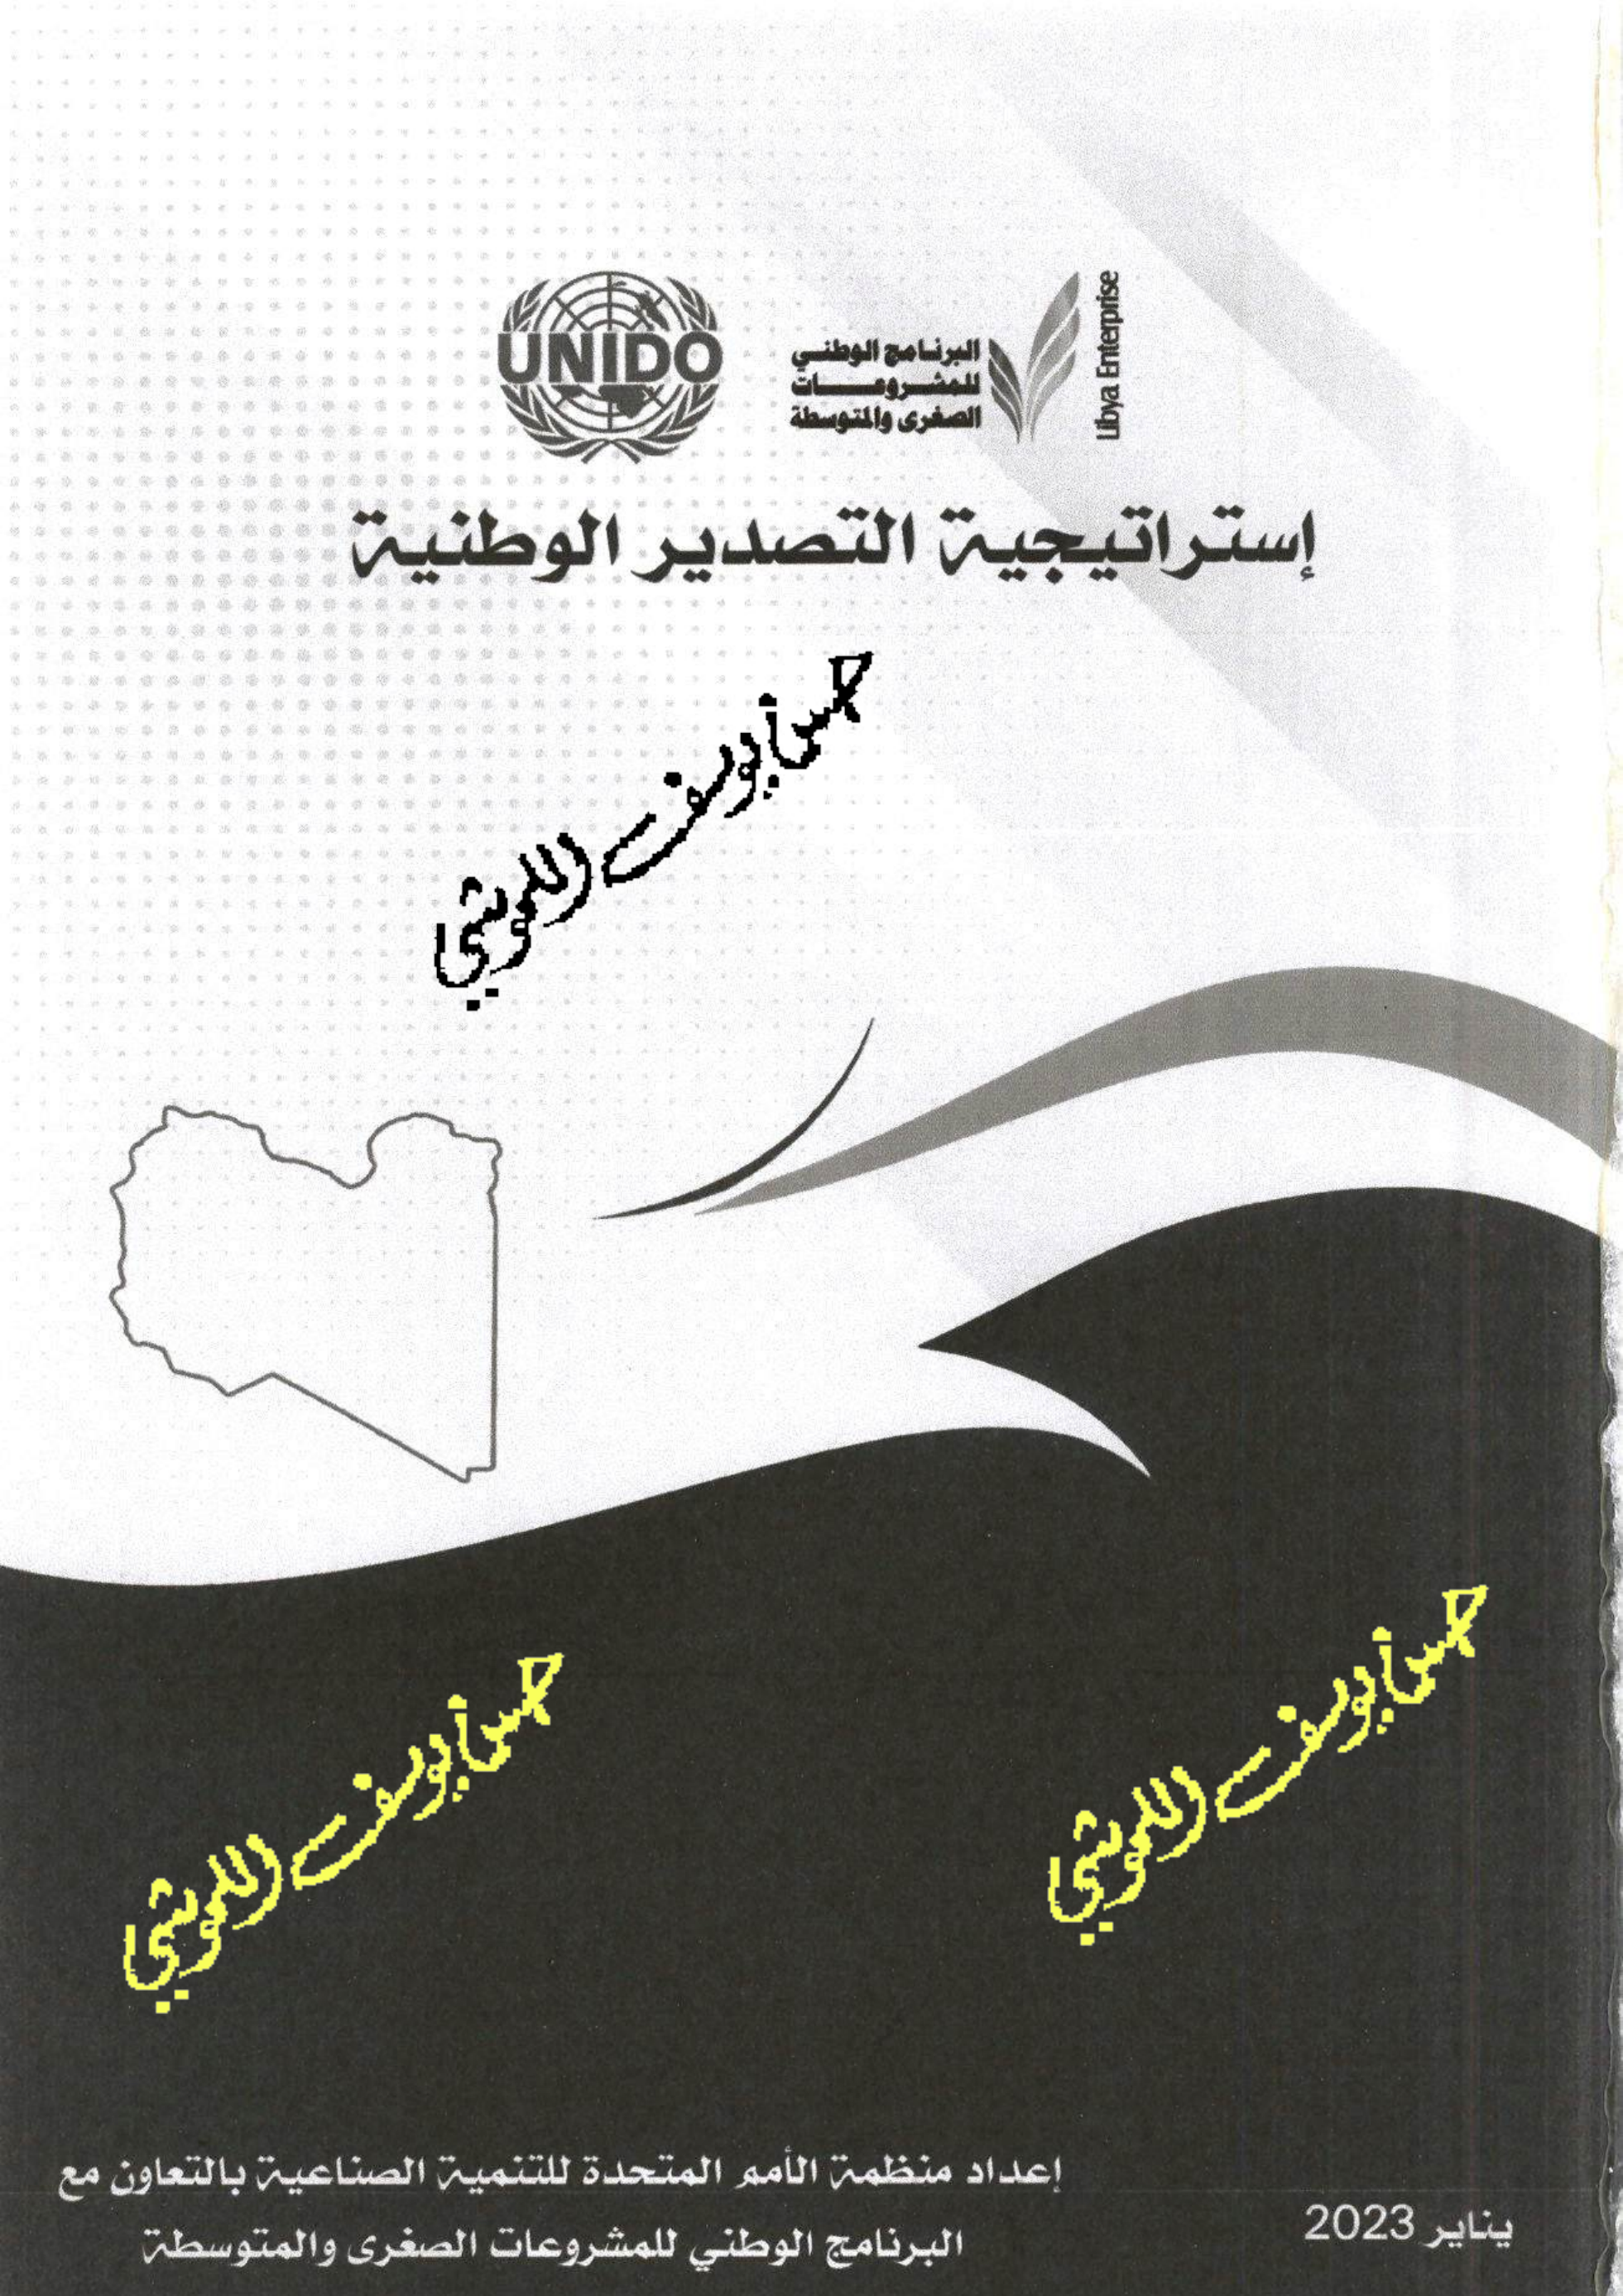 UNIDO
البرنامج الوطني
للمشروعات
الصغرى والمتوسطة
Libya Enterprise
إستراتيجية التصدير الوطنية
حسن يوسف اللموشي
حسن يوسف اللموشي
حسن يوسف اللموشي
إعداد منظمة الأمم المتحدة للتنمية الصناعية بالتعاون مع
البرنامج الوطني للمشروعات الصغرى والمتوسطة
يناير 2023